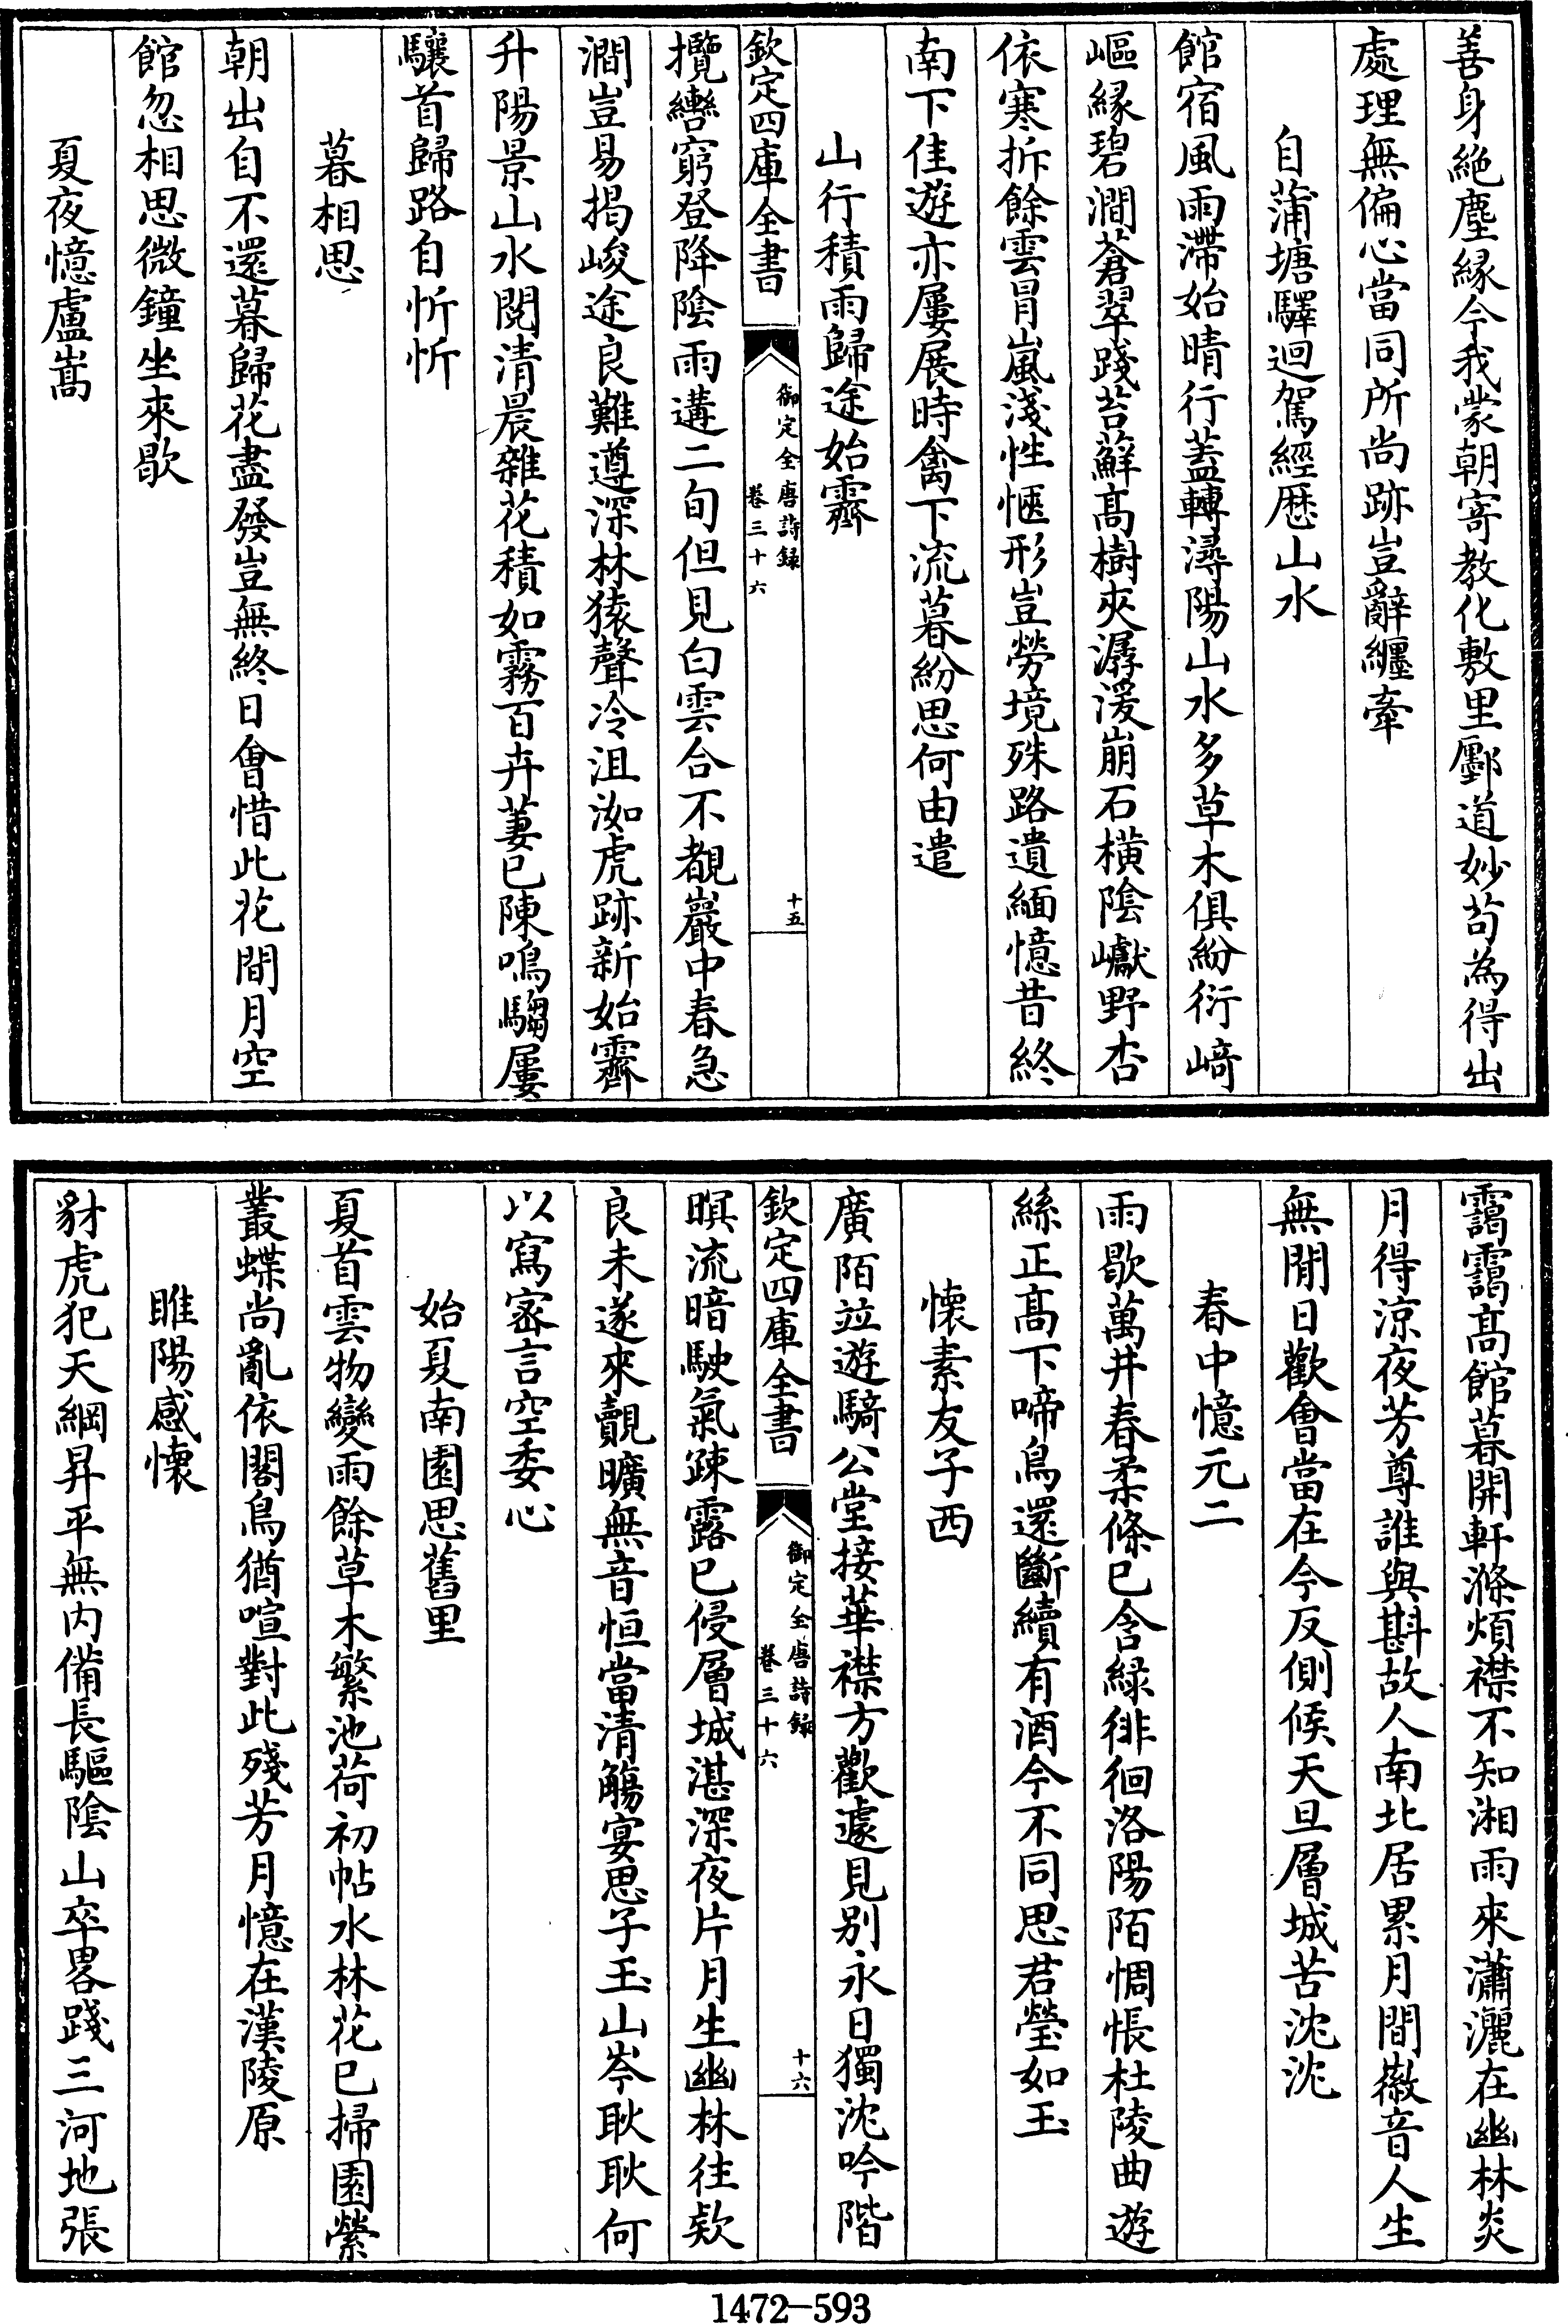 善身絶塵緣今我蒙朝寄教化敷里鄽道妙茍為得出
處理無偏心當同所尚跡豈辭纏牽
自蒲塘驛迴駕經歴山水
館宿風雨滯始晴行蓋轉潯陽山水多草木俱紛衍﨑
嶇緣碧澗蒼翠踐苔蘚髙樹夾潺湲崩石横陰巘野杏
依寒拆餘雲冐嵐淺性愜形豈勞境殊路遺緬憶昔終
南下佳遊亦屢展時禽下流暮紛思何由遣
山行積雨歸途始霽
欽定四庫全書
御定全唐詩録
卷三十六
十五
攬轡窮登降陰雨遘二旬但見白雲合不覩巖中春急
澗豈易揭峻途良難遵深林猿聲冷沮洳虎跡新始霽
升陽景山水閱清晨雜花積如霧百卉萋已陳鳴騶屢
驤首歸路自忻忻
暮相思
朝出自不還暮歸花盡發豈無終日會惜此花間月空
館忽相思微鐘坐來歇
夏夜憶盧嵩
靄靄髙館暮開軒滌煩襟不知湘雨來瀟灑在幽林炎
月得涼夜芳尊誰與斟故人南北居累月間徽音人生
無閒日歡會當在今反側候天旦層城苦沈沈
春中憶元二
雨歇萬井春柔條已含緑徘徊洛陽陌惆悵杜陵曲遊
絲正髙下啼鳥還斷續有酒今不同思君瑩如玉
懷素友子西
廣陌竝遊騎公堂接華襟方歡遽見别永日獨沈吟階
暝流暗駛氣疎露已侵層城湛深夜片月生幽林往欵
良未遂來覿曠無音恒當清觴宴思子玉山岑耿耿何
以寫宻言空委心
始夏南園思舊里
夏首雲物變雨餘草木繁池荷初帖水林花已掃園縈
叢蝶尚亂依閣鳥猶喧對此殘芳月憶在漢陵原
睢陽感懷
豺虎犯天綱昇平無内備長驅陰山卒畧踐三河地張
欽定四庫全書
御定全唐詩録
卷三十六
十六
1472—593